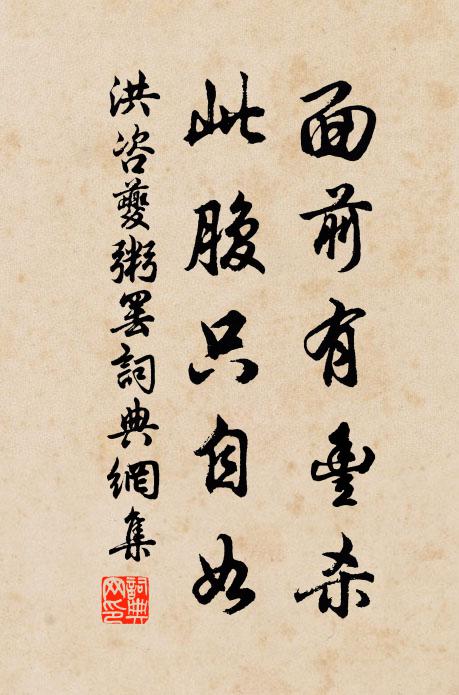 面前有豐杀
此腹只自如
洪咨夔粥罢詞典網集
詞典网印